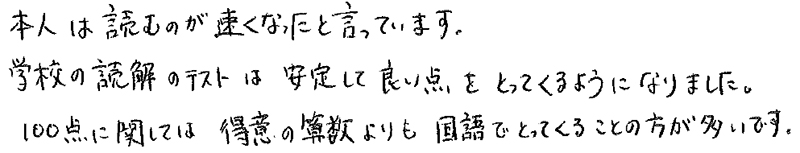 本人は読むのが速くなったと言っています。
学校の読解のテストは安定して良い点をとってくるようになりました。
100点に関しては得意の算数よりも国語でとってくることの方が多いです。